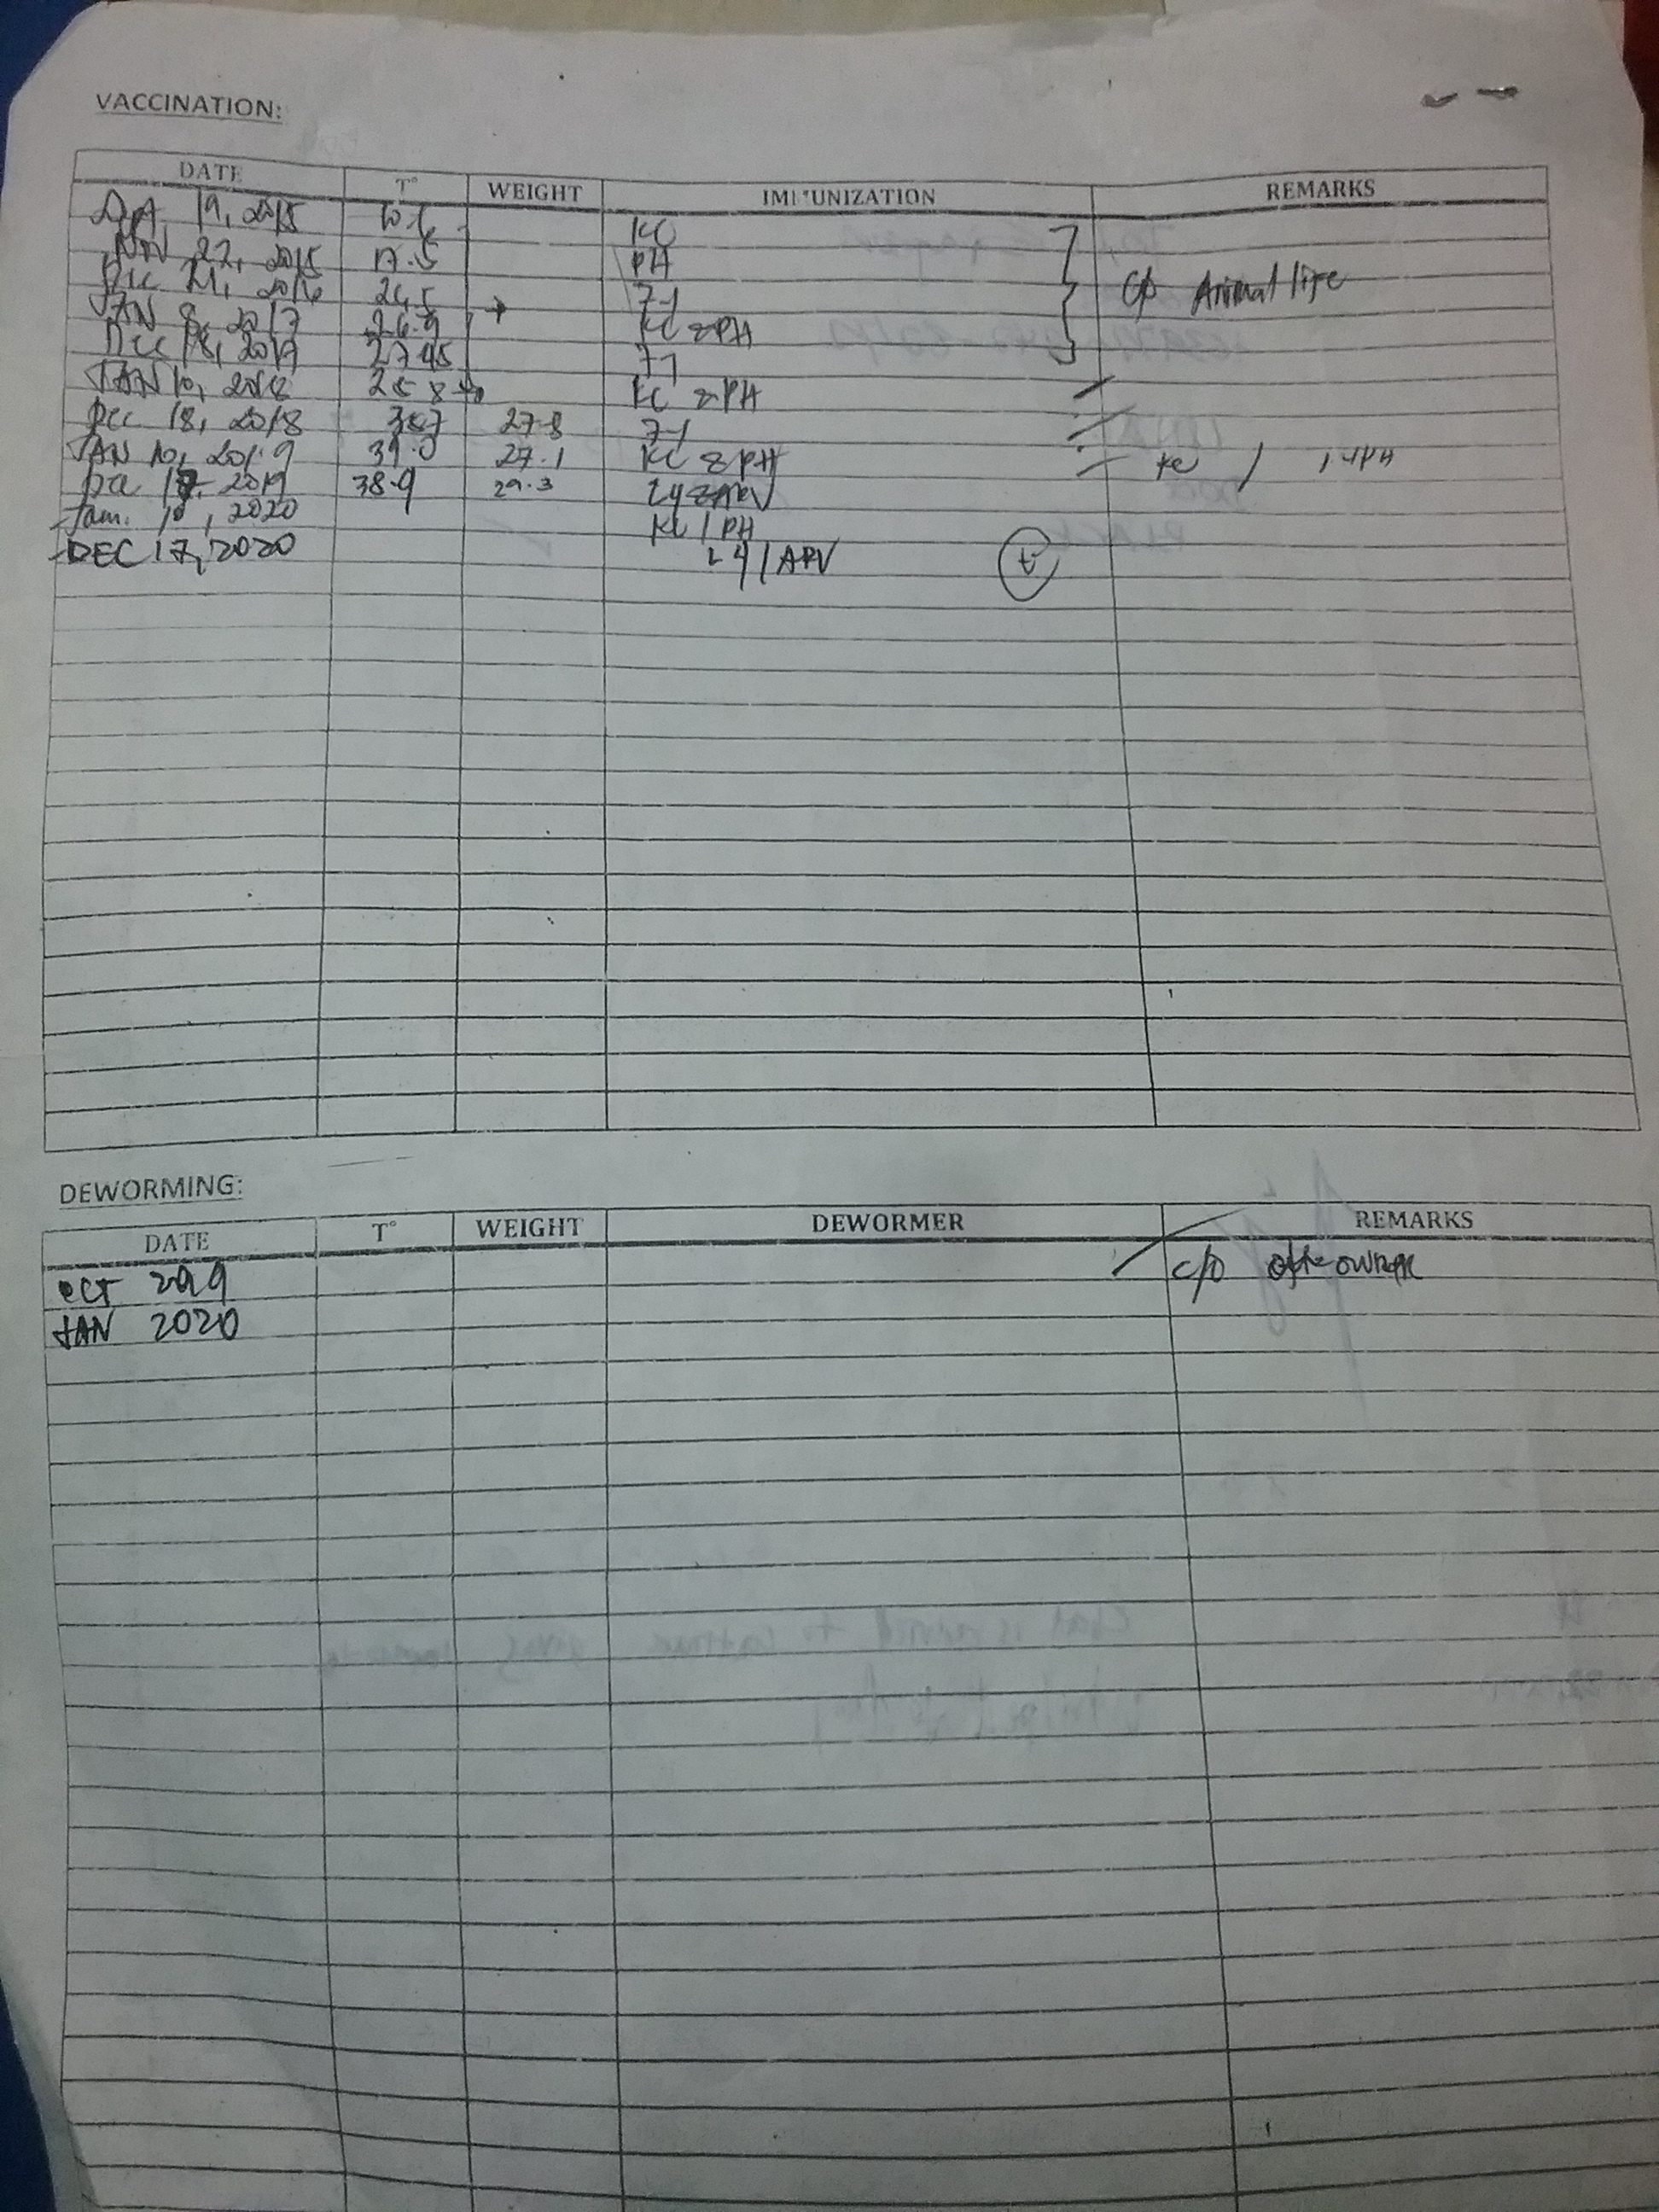 VACCINATION:
DATE T° WEIGHT IMMUNIZATION REMARKS
19, 2015 KC
27, 2015 17.5 PH
2016 24.5 7-1 c/o Animal life
JAN 8, 2017 26.9 KC & PH
Dec 18, 2017 27.45 7-1
JAN 10, 2018 28.8 KC & PH
Dec 18, 2018 38.7 27.8 7-1
JAN 10, 2019 39.0 27.1 KC & PH KC / PH
Dec 17, 2019 38.9 29.3 L4 & ARV
Jan. 10, 2020 KC / PH
DEC 17, 2020 L4 / ARV
DEWORMING:
DATE T° WEIGHT DEWORMER REMARKS
OCT 2019 c/o of the owner
JAN 2020